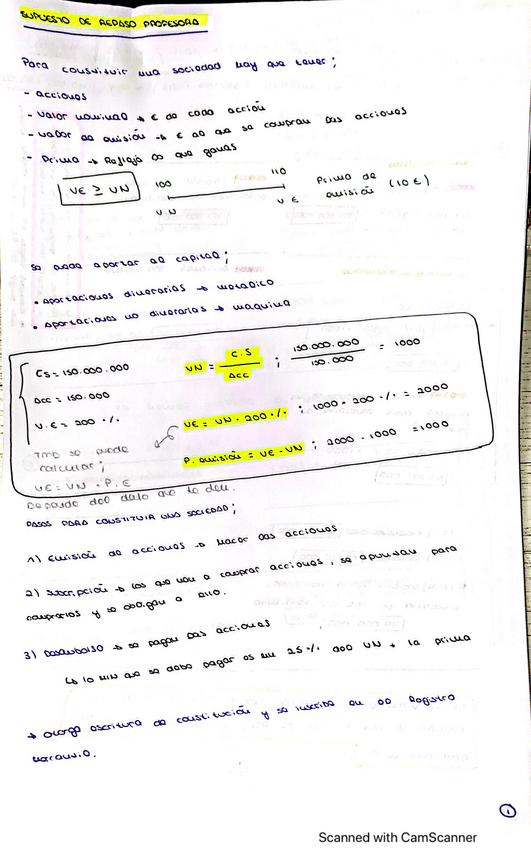 SUPUESTO DE REPASO PROFESORA
Para constituir una sociedad hay que tener;
- acciones
- valor nominal → € de cada acción
- valor de emisión → € al que se compran las acciones
- Prima → Refleja lo que ganas
VE ≥ VN
100
110
V.N
V E
Prima de
emisión (10 €)
Se puede aportar al capital;
• Aportaciones dinerarias → metálico
• Aportaciones no dinerarias → maquina
CS = 150.000.000
Acc = 150.000
V.E = 200 %
VN = C.S / Acc ; 150.000.000 / 150.000 = 1000
VE = VN · 200 % ; 1000 · 200 % = 2000
P. emisión = VE - VN ; 2000 - 1000 = 1000
Tmb se puede
calcular;
VE = VN + P.E
Depende del dato que te den.
PASOS PARA CONSTITUIR UNA SOCIEDAD;
1) Emisión de acciones → Hacer las acciones
2) Suscripción → los que van a comprar acciones, se apuntan para
comprarlas y se obligan a ello.
3) Desembolso → se pagan las acciones
↳ lo MIN que se debe pagar es un 25 % del VN + la prima
→ Otorga escritura de constitución y se inscribe en el Registro
Mercantil.
1
Scanned with CamScanner